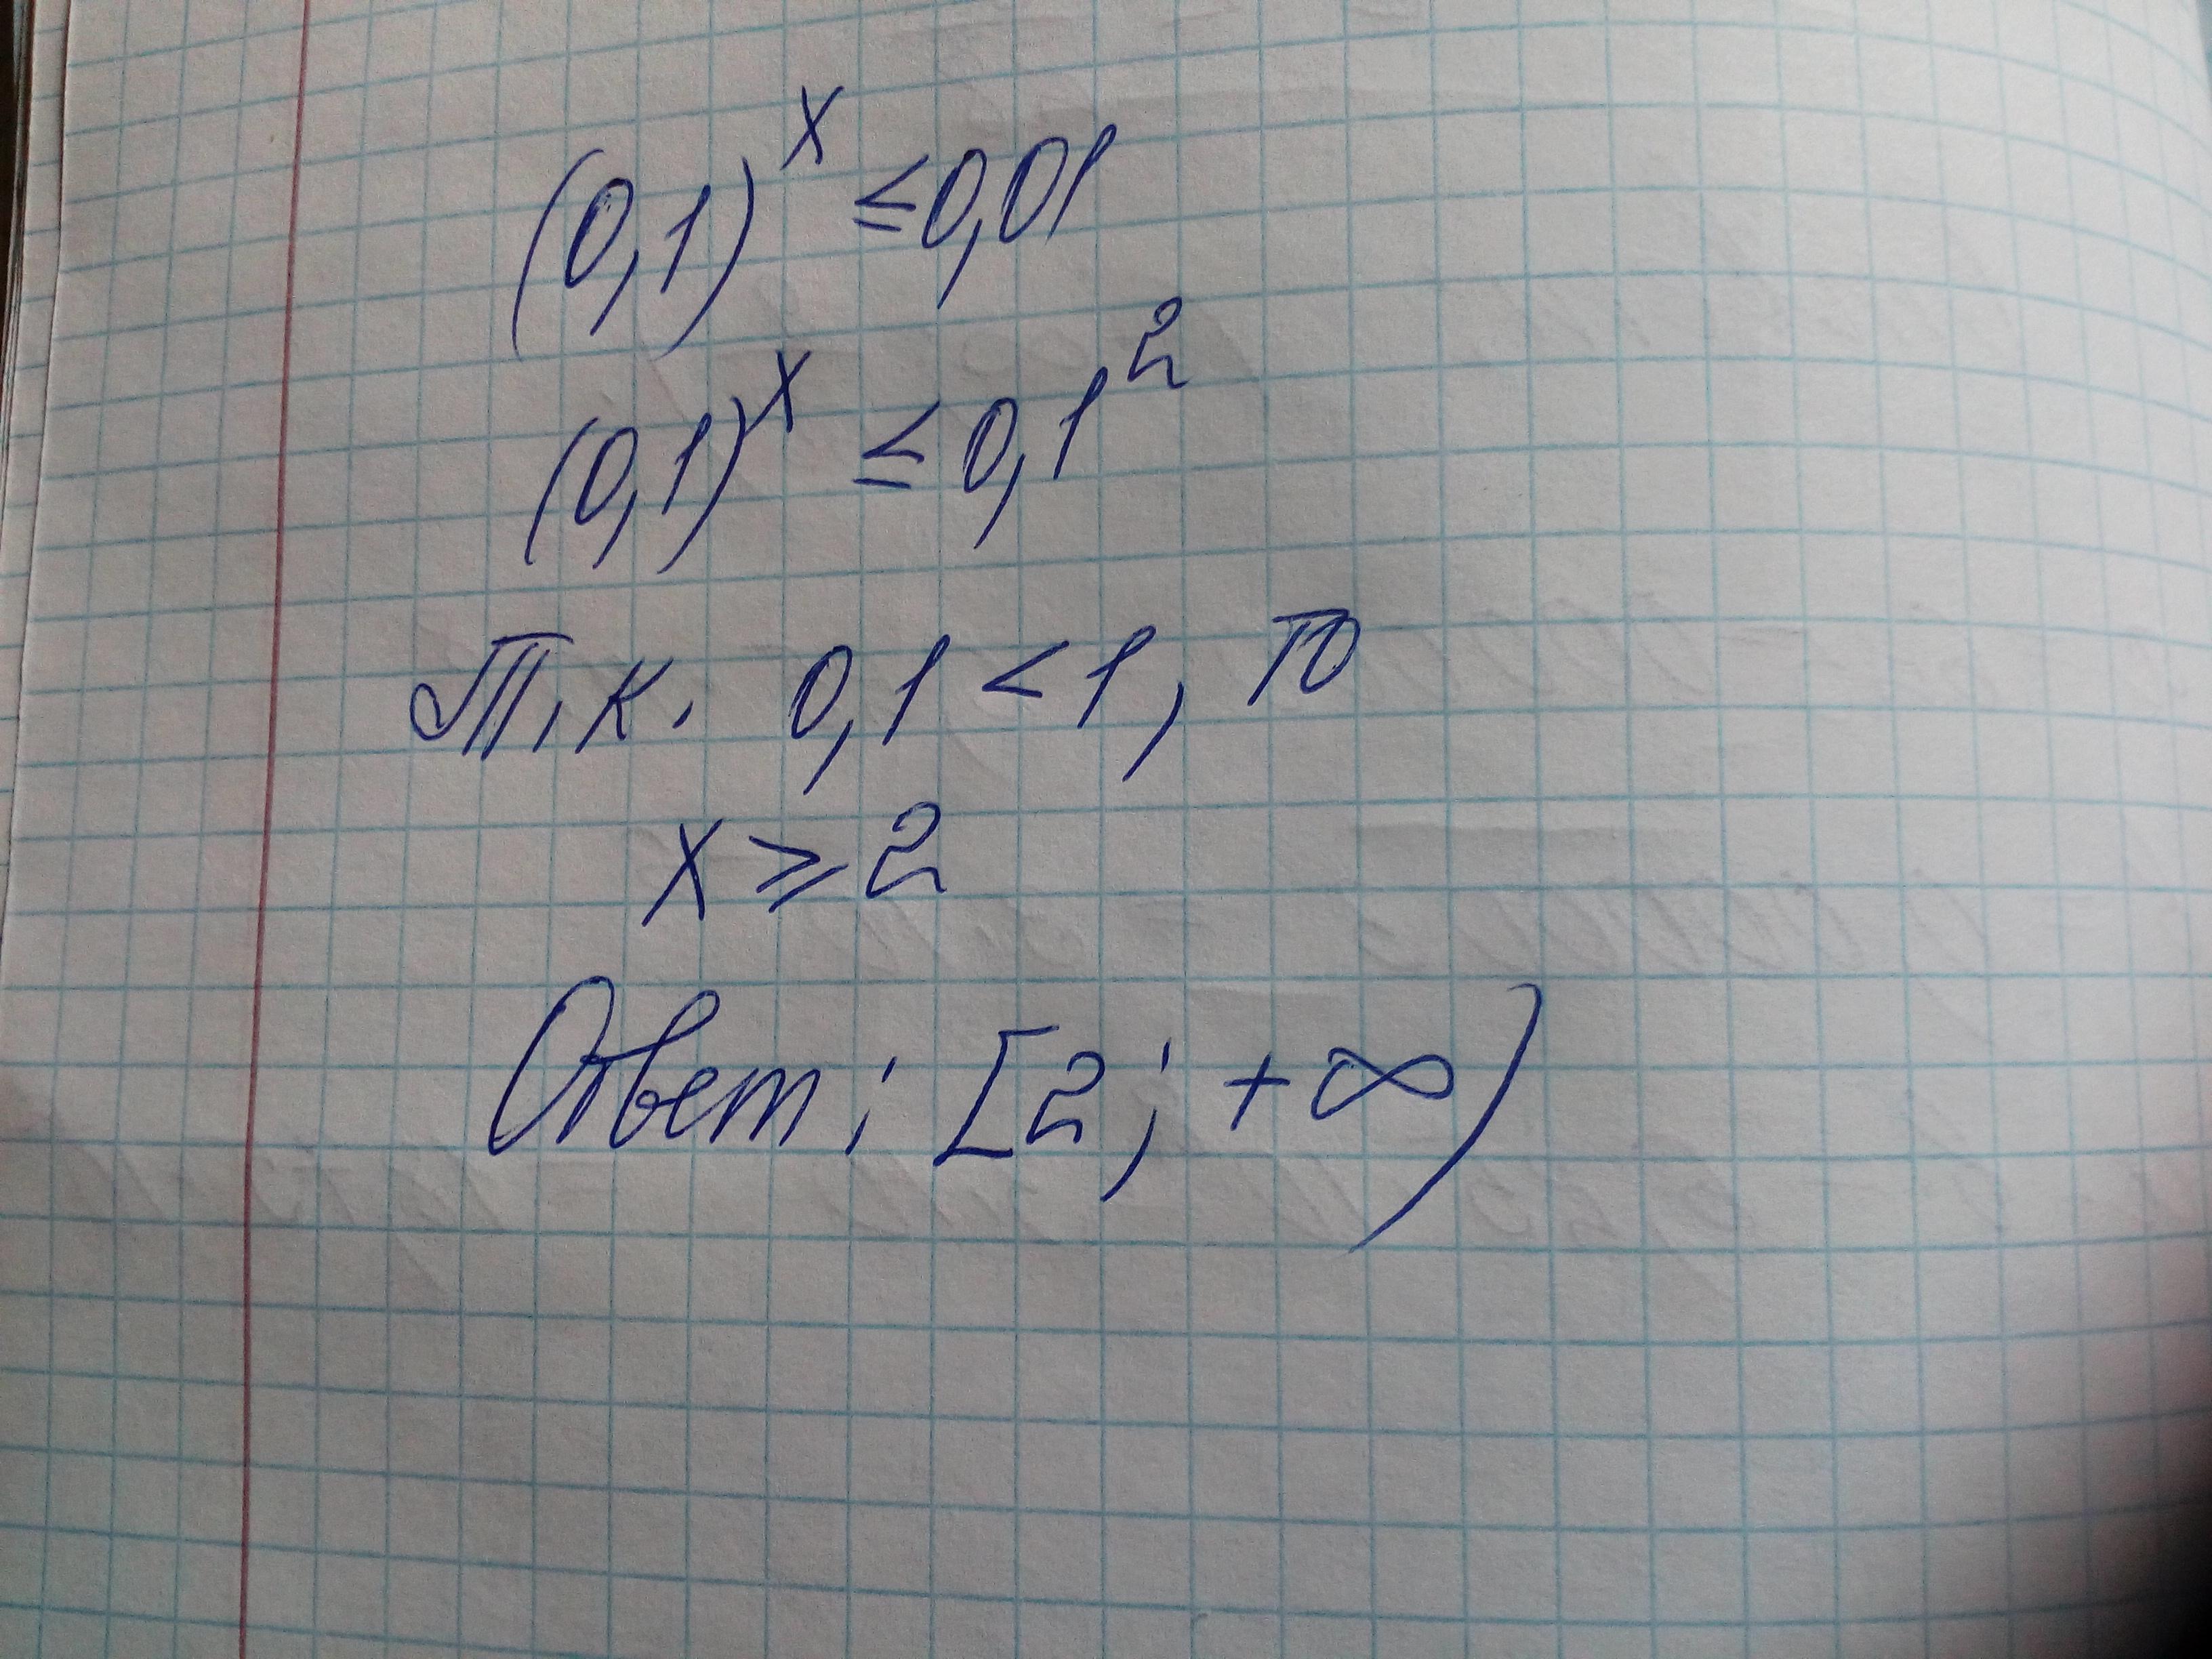 (0,1)^x ≤ 0,01
(0,1)^x ≤ 0,1^2
Т.к. 0,1 < 1, то
x ≥ 2
Ответ: [2; +∞)